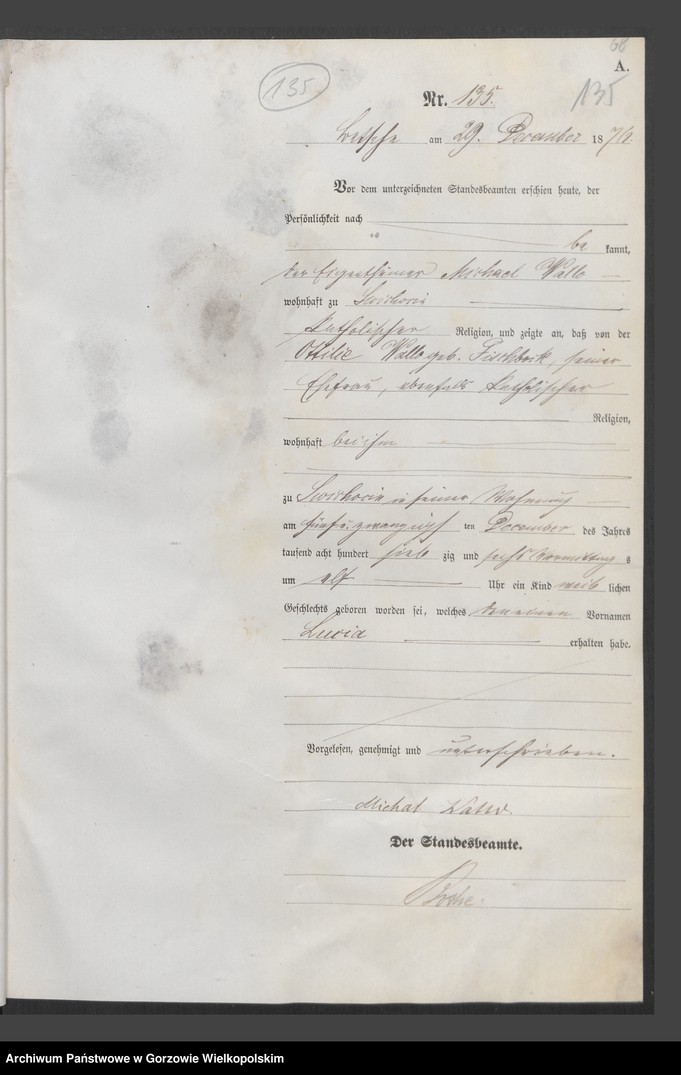 66
A.
135.
Nr. 135.
135
Betsche am 29. December 1876.
Vor dem unterzeichneten Standesbeamten erschien heute, der
Persönlichkeit nach
be kannt,
der Eigenthümer Michael Wallo
wohnhaft zu
katholischer Religion, und zeigte an, daß von der
Ottilie Wallo geb. Fischbock, seiner
Ehefrau, ebenfalls katholischer
Religion,
wohnhaft bei ihm
zu in seiner Wohnung
am fünf u. zwanzigst ten December des Jahres
tausend acht hundert sieb zig und sechs Vormittag s
um elf Uhr ein Kind weib lichen
Geschlechts geboren worden sei, welches den einen Vornamen
Lucia erhalten habe.
Vorgelesen, genehmigt und unterschrieben.
Michal Wallo
Der Standesbeamte.
Archiwum Państwowe w Gorzowie Wielkopolskim